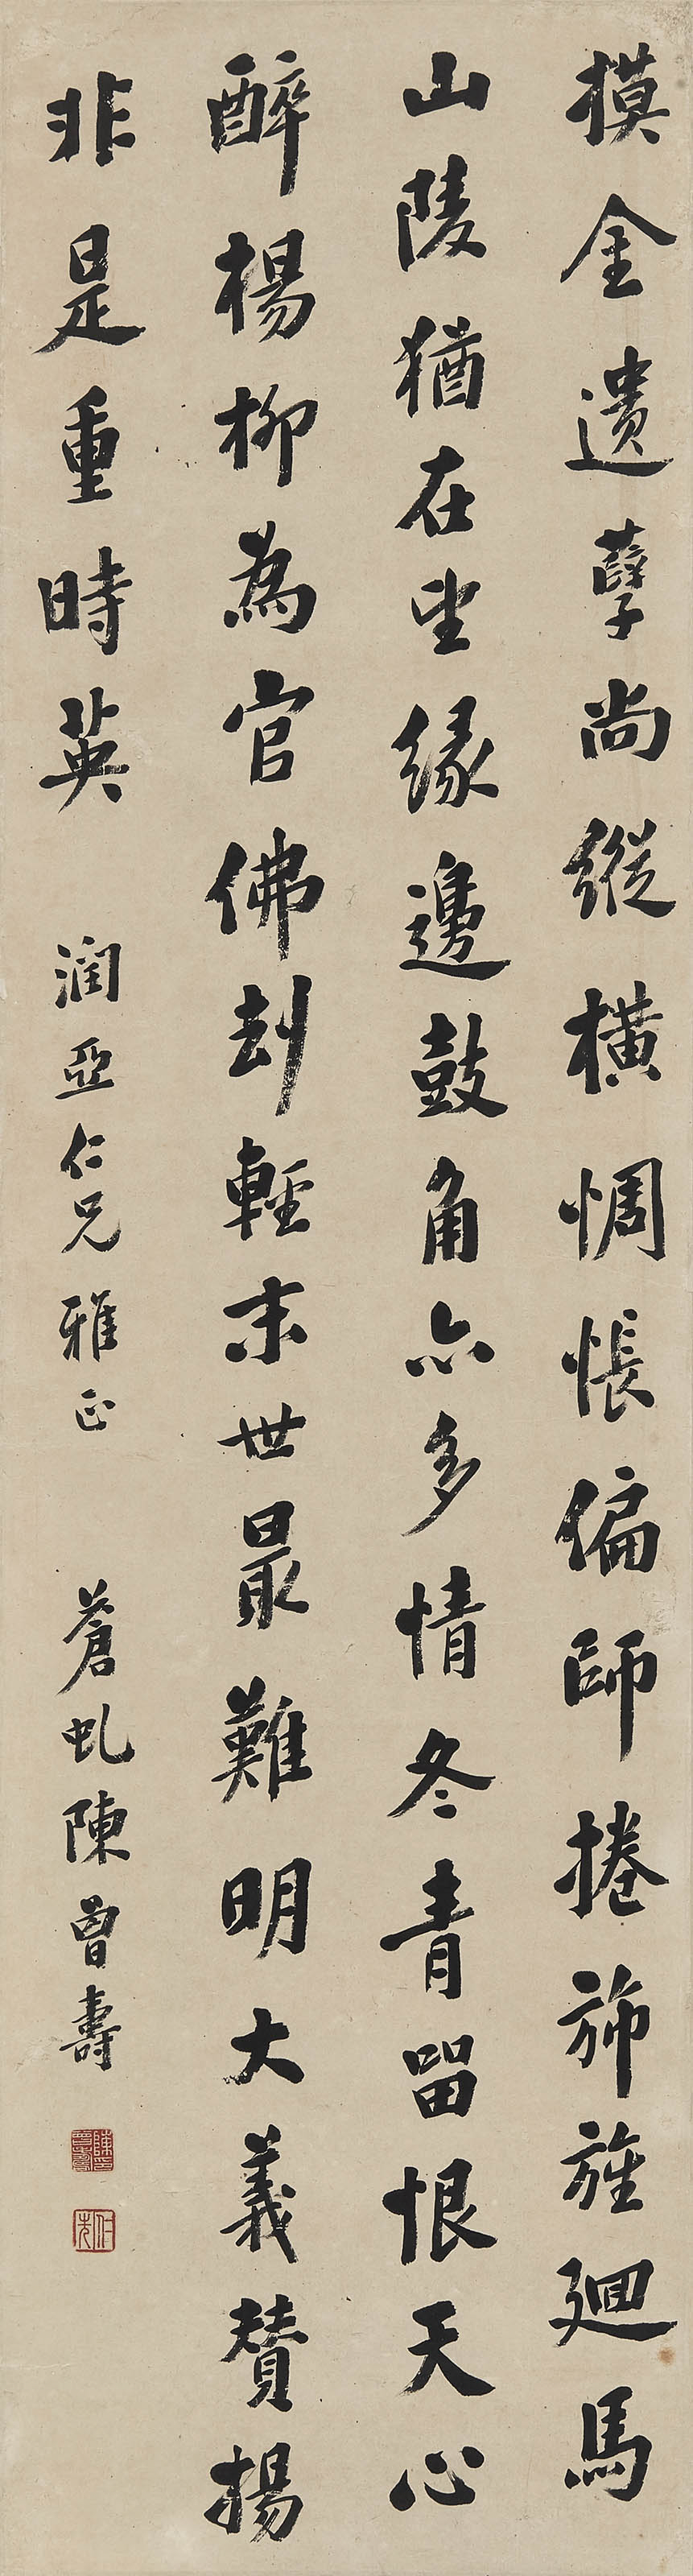 摸金遺孽尚縱橫惆悵偏師捲斾旌廻馬
山陵猶在望緣邊鼓角亦多情冬青留恨天心
醉楊柳為官佛劫輕末世最難明大義贊揚
非是重時英 潤亞仁兄雅正 蒼虬陳曾壽
仁先